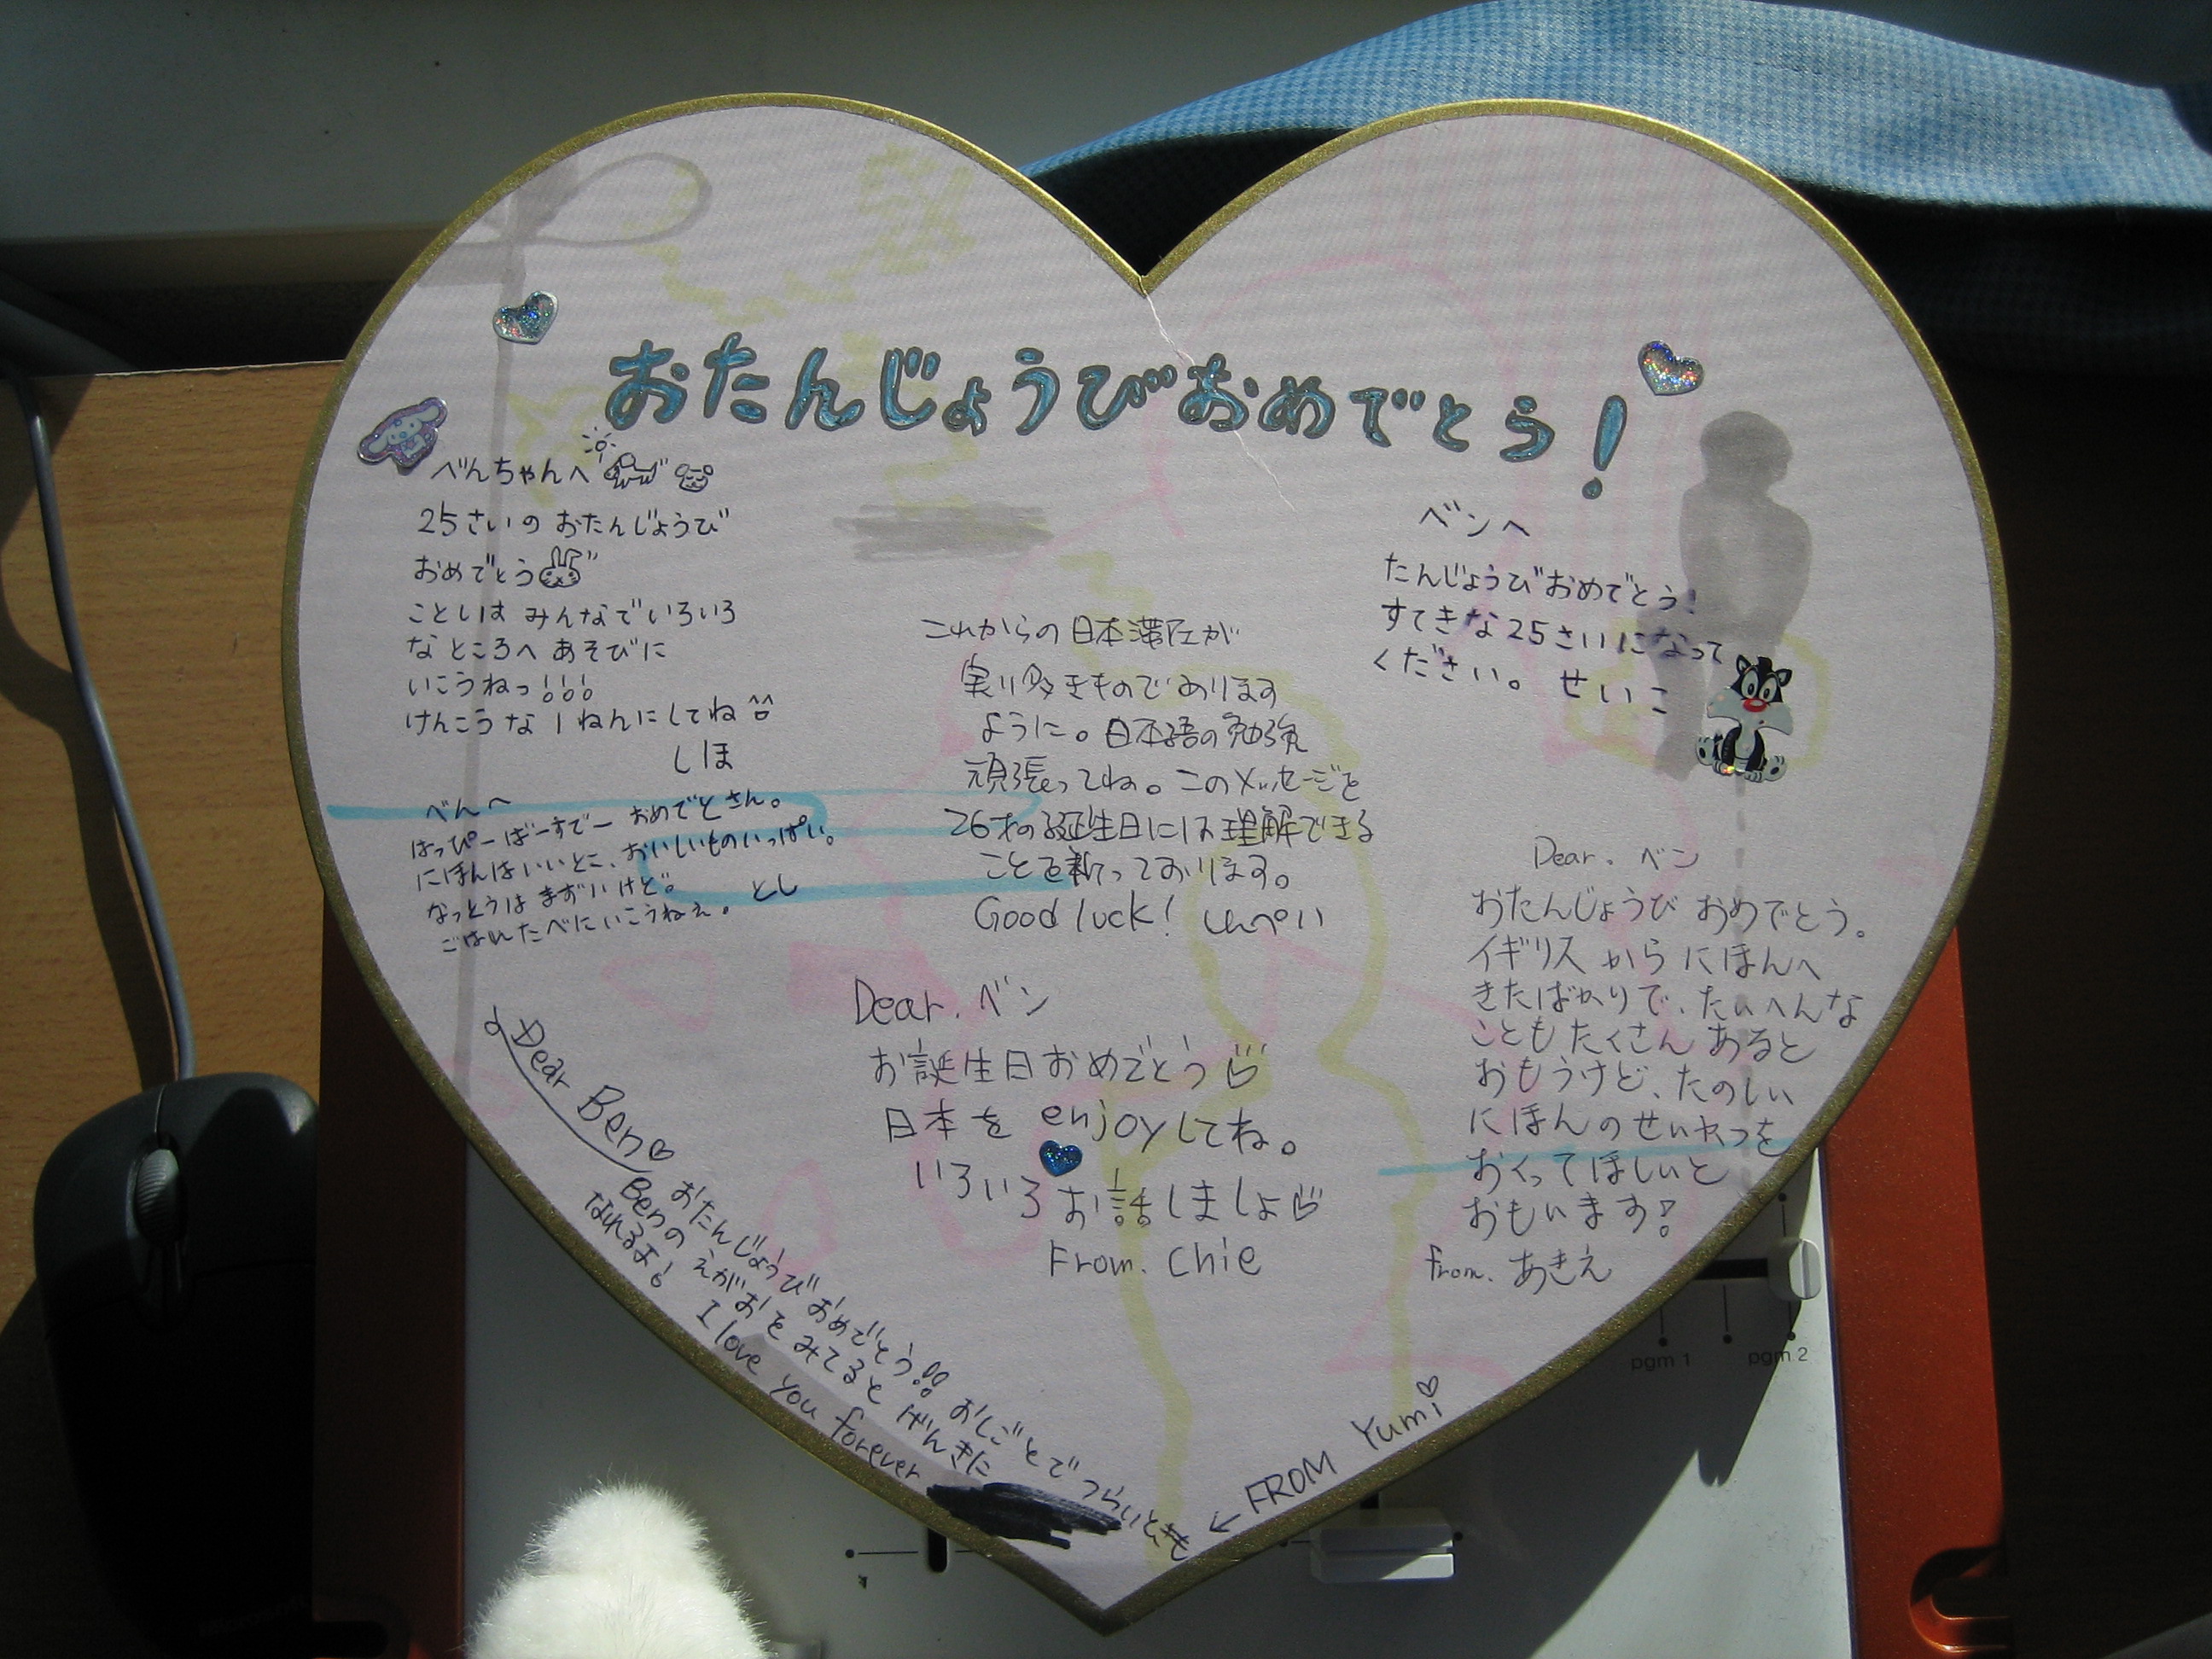 おたんじょうびおめでとう!
べんちゃんへ
25さいの おたんじょうび
おめでとう
ことしは みんなでいろいろ
なところへ あそびに
いこうねっ!!!
けんこうな1ねんにしてね^^
しほ
べんへ
はっぴーばーすでー おめでとさん。
にほんはいいとこ、おいしいものいっぱい。
なっとうは まずいけど。 とし
ごはんたべにいこうねえ。
これからの日本滞在が
実り多きものであります
ように。日本語の勉強
頑張ってね。このメッセージを
26才の誕生日には理解できる
ことを祈っております。
Good luck! しんぺい
ベンへ
たんじょうびおめでとう!
すてきな25さいになって
ください。 せいこ
Dear. ベン
おたんじょうび おめでとう。
イギリスから にほんへ
きたばかりで、たいへんな
こともたくさん あると
おもうけど、たのしい
にほんのせいかつを
おくってほしいと
おもいます!
from. あきえ
Dear. ベン
お誕生日おめでとう
日本を enjoyしてね。
いろいろお話しましょ
From. Chie
Dear Ben♡
おたんじょうびおめでとう!! おしごとでつらいときも
Benの えがおを みてると げんきに
なれるよ! I love you forever
← FROM Yumi♡
pgm 1
pgm 2